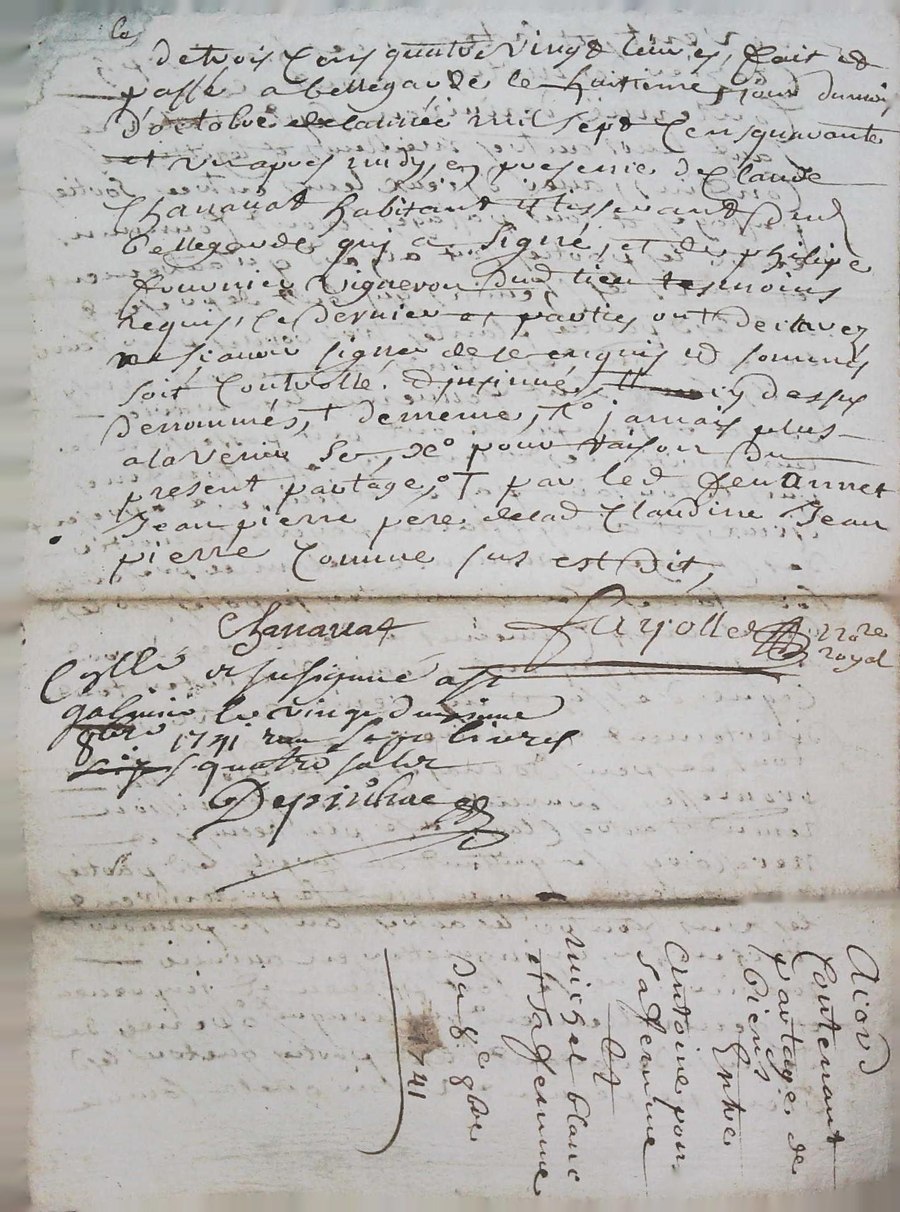 de trois Cens quatre vingt livres, fait et
passé a bellegarde le huitieme jour dumois
D'octobre delannée mil sept Cens quarante
et un apres midy, en presence de Claude
Chanavat habitant et tisserand dud
bellegarde qui a signé, et de philipe
fournier vigneron dud lieu tesmoins
requis, le dernier et parties ont declarez
ne scavoir signer de ce enquis et sommés
soit Controllé. & insinué, cy dessus
denommés, † de meme, jamais plus
a la venir pour raison du
present partage, † par led feu annet
Jean pierre pere delad Claudine Jean
pierre Comme sus est dit,
Chanavat Fayolle nore
royal
Cllé et insinué a st
galmier le vingt deuxieme
8bre 1741 recu sept livres
quatre sols
Depinhac
Acord
Contenant
partage de
biens
Entre
Antoine pon
sa femme
Et
michel blanc
et sa femme
Du 8e 8bre
1741